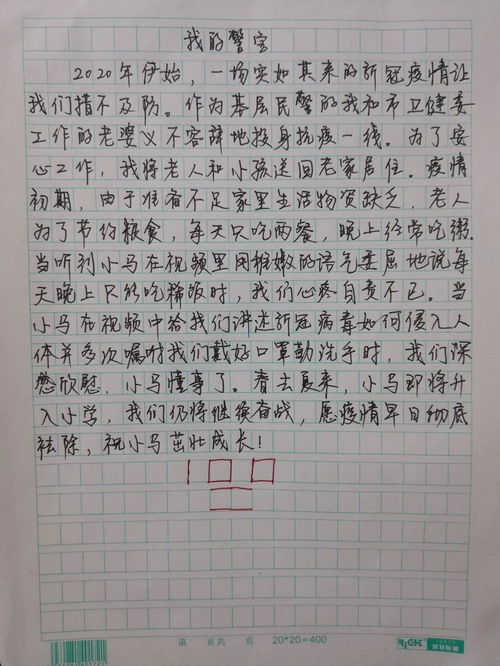 我的警官
2020年伊始，一场突如其来的新冠疫情让
我们措不及防。作为基层民警的我和市卫健委
工作的老婆义不容辞地投身抗疫一线。为了安
心工作，我将老人和小孩送回老家居住。疫情
初期，由于准备不足家里生活物资缺乏，老人
为了节约粮食，每天只吃两餐，晚上经常吃粥.
当听到小马在视频里用稚嫩的语气委屈地说每
天晚上只能吃稀饭时，我们心疼自责不已。当
小马在视频中给我们讲述新冠病毒如何侵入人
体并多次嘱咐我们戴好口罩勤洗手时，我们深
感欣慰，小马懂事了。春去夏来，小马即将升
入小学，我们仍将继续奋战，愿疫情早日彻底
祛除，祝小马茁壮成长！
第 页共 页 20*20=400